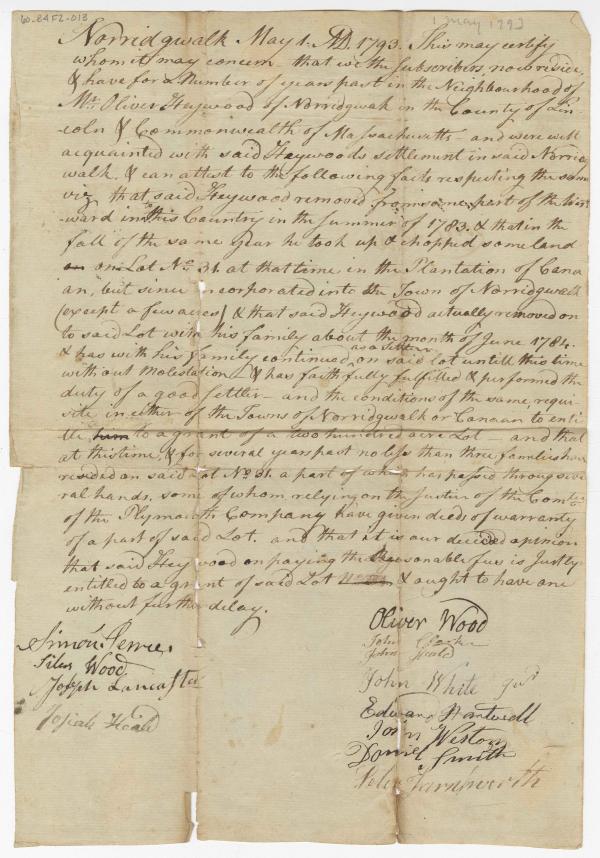 60-E4F2-013
1 May 1793
Norridgwalk May 1. AD. 1793. This may certify
whom it may concern that we the Subscribers, now reside,
& have for a Number of years past in the Neighbourhood of
Mr. Oliver Heywood of Norridgwak in the County of Lin-
coln & Commonwealth of Massachusetts – and were well
acquainted with said Heywoods settlement in said Norridg
walk. & can attest to the following facts respecting the same
viz, that said Heywood removed from some part of the
ward in this Country in the summer of 1783. & that in the
fall of the same year he took up & chopped some land
on on Lot No. 31. at that time in the Plantation of Cana
an, but since incorporated into the Town of Norridgwalk
(except a few acres) & that said Heywood actually removed on
to said Lot with his family about the month of June 1784.
as a Settler
& has with his family continued, on said lot untill this time
without Molestation – & has faithfully fulfilled & performed the
duty of a good settler – and the conditions of the same, requi-
site in either of the Towns of Norridgwalk or Canaan to enti
tle him to a grant of a two hundred acre Lot – and that
at this time, & for several years past no less than three families have
resided on said Lot No. 31. a part of which has passed through seve
ral hands, some of whom relying on the Justice of the Comtee
of the Plymouth Company have given deeds of warranty
of a part of said Lot. and that it is our decided opinion
that said Heywood on paying the reasonable fees is Justly
entitled to a grant of said Lot & ought to have one
without further delay.
Oliver Wood
John Clarke
John Heald
John White Junr
Edward Hartwell
John Weston
Daniel Smith
Farnsworth
Simon Pierce,
Silas Wood
Joseph Lancaster
Josiah Heald